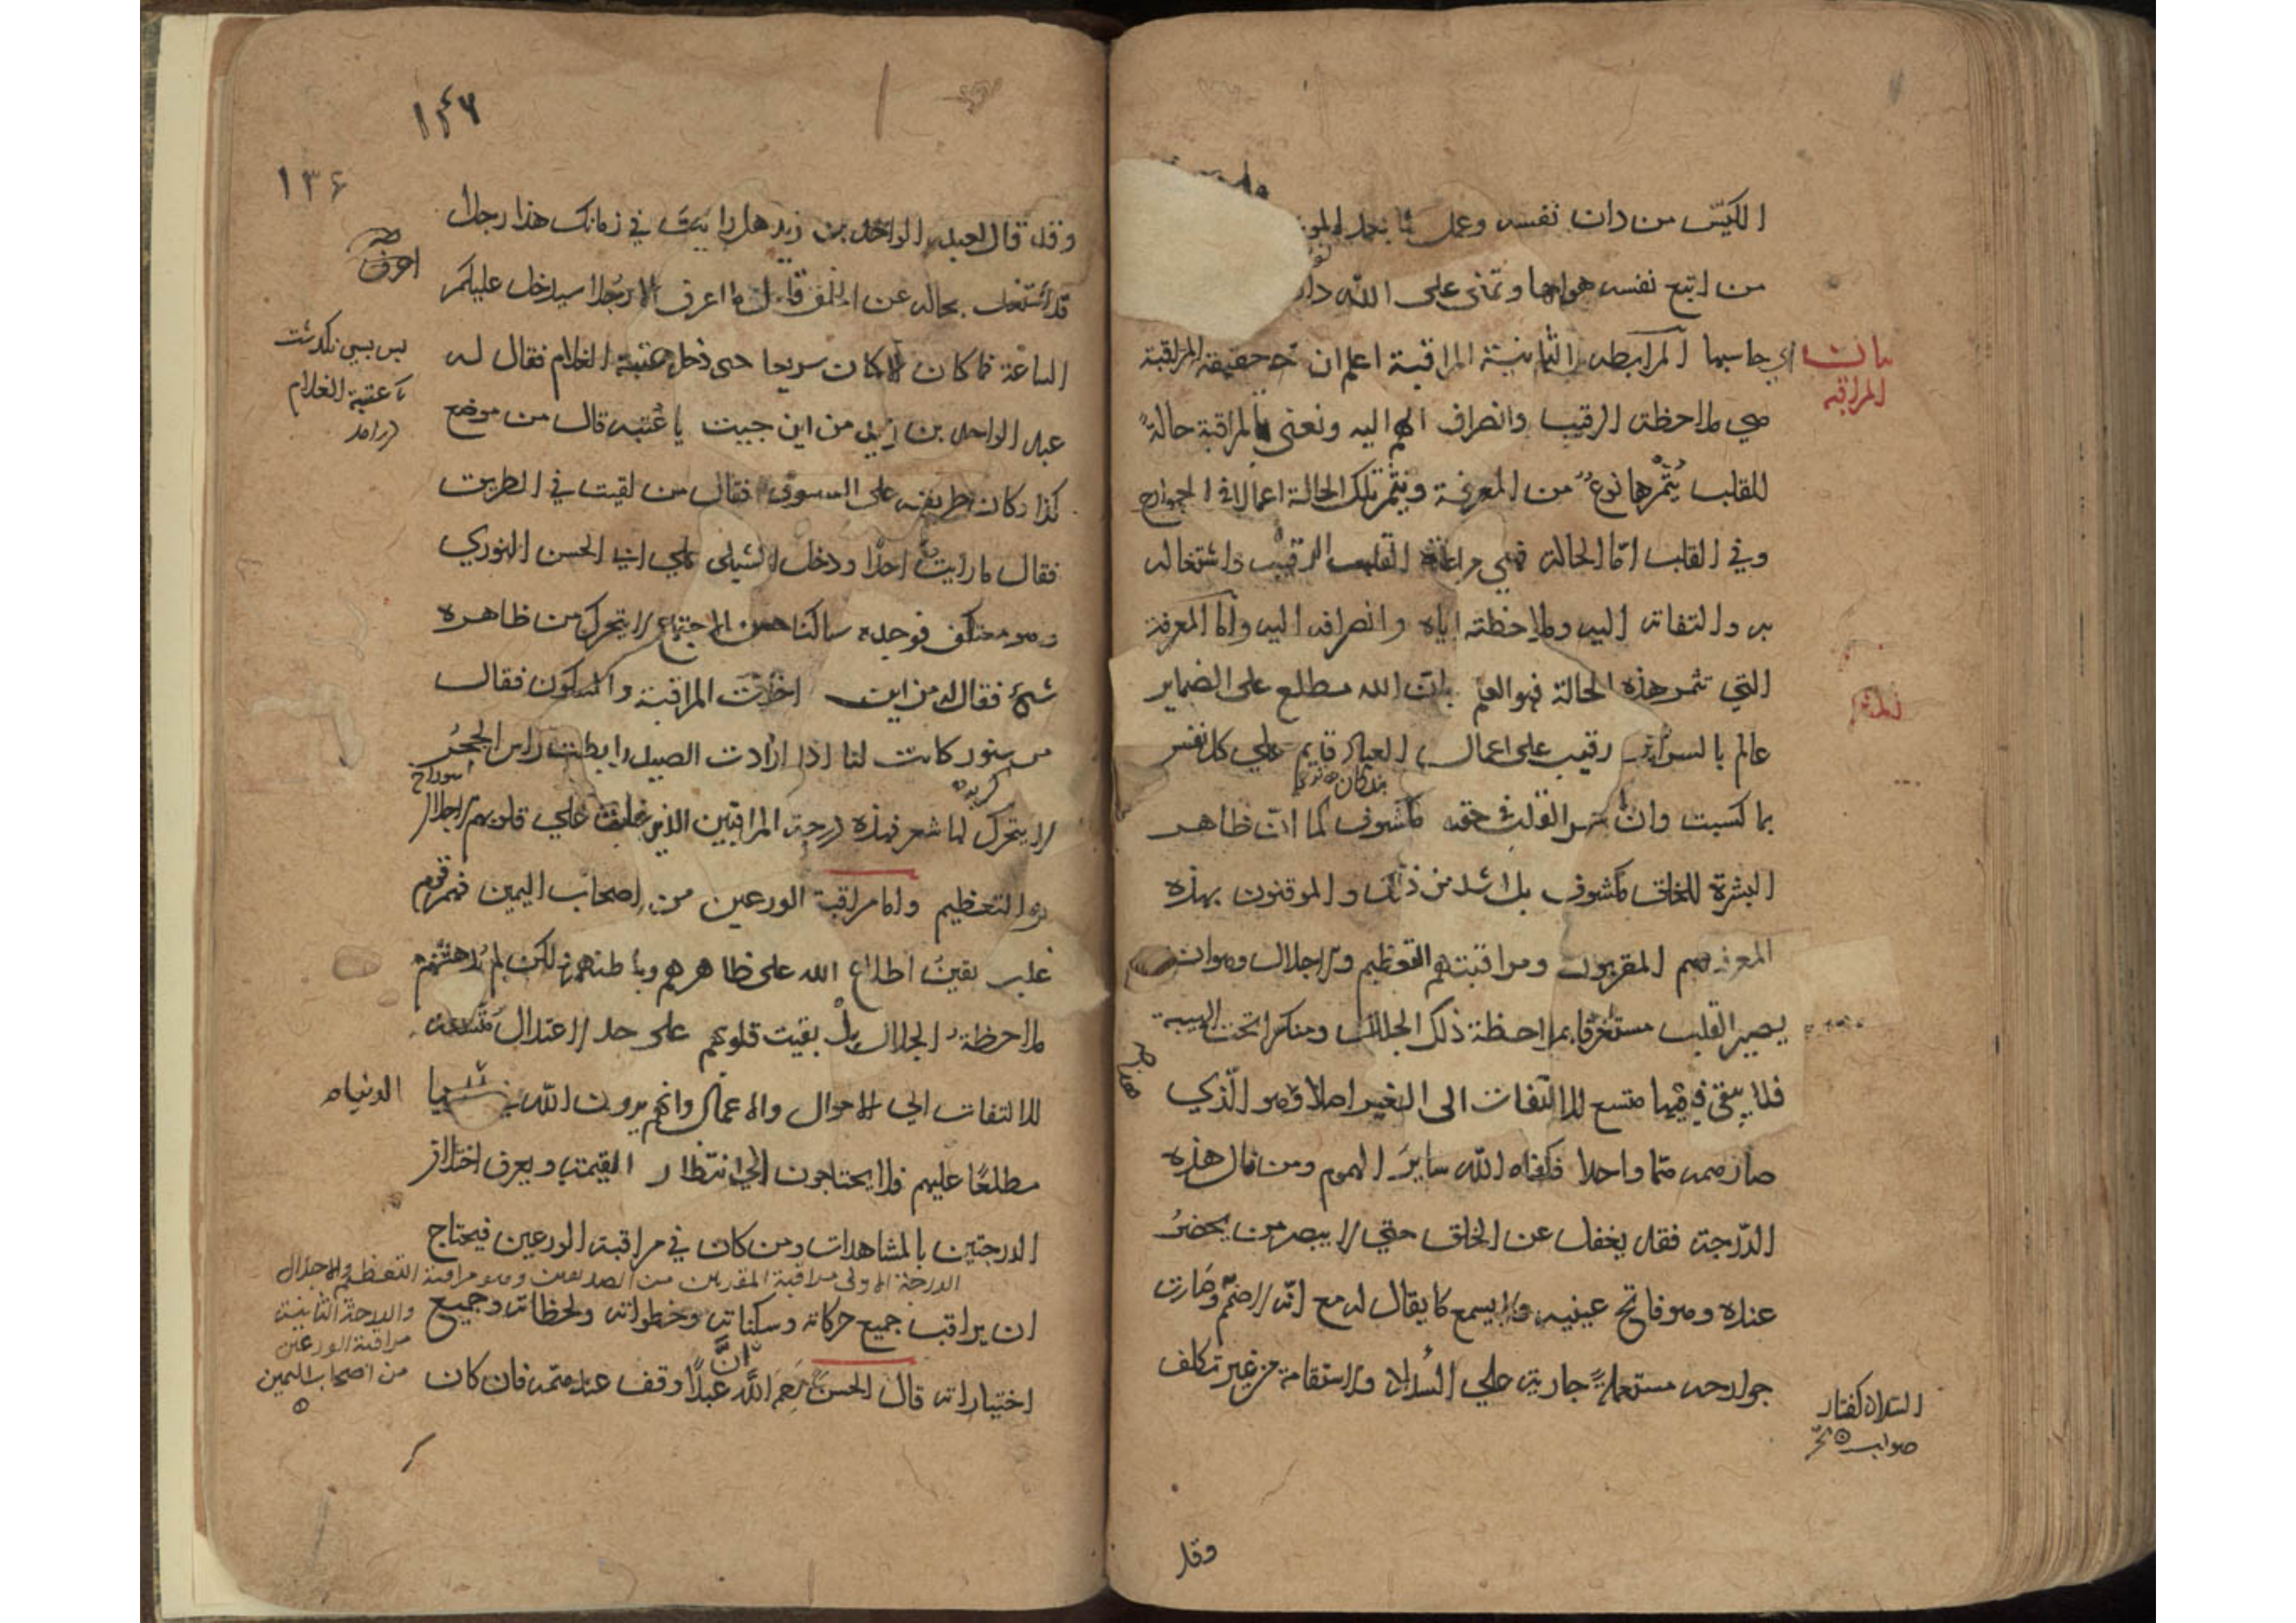 الكيّس من دان نفسه وعمل لما بعد الموت
من اتبع نفسه هواها وتمنى على الله دان
اي حاسبها المرابطه الثانية المراقبة اعلم ان حقيقة المراقبة
بيان
المراقبه
هي ملاحظة الرقيب وانصراف الهم اليه ونعنى بالمراقبة حالةً
للقلب يُثمرها نوعٌ من المعرفة ويثمر تلك الحالة اعمالا في الجوارح
وفي القلب امّا الحالة فهي مراعاة القلب الرقيب واشتغاله
به والتفاته اليه وملاحظته اياه وانصرافه اليه واما المعرفة
التي تثمر هذه الحالة فهو العلم بانّ الله مطلع على الضماير
عالم بالسرائر رقيب على اعمال العباد قايم علي كل نفس
بندكان
بما كسبت وانّ سر القلب في حقه مكشوف كما انّ ظاهر
البشرة للخلق مكشوف بل اشد من ذلك والموقنون بهذه
المعرفة هم المقربون ومراقبتهم التعظيم والاجلال وهو ان
يصير القلب مستغرقا بملاحظة ذلك الجلال ومنكرا تحت الهيبة
فلا يبقى فيها متسع للالتفات الى الغير اصلا وهو الّذي
صار همه همّا واحدا فكفاه الله سايرَ الهموم ومن نال هذه
الدّرجة فقد يغفل عن الخلق حتي لا يبصر من يحضرُ
عنده وهو فاتح عينيه ولا يسمع ما يقال له مع انّه لا صمّ وصارت
جوارحه مستعملةً جارية علي السداد والاستقامة من غير تكلف
السداد كفتار
صواب
وقد
١٤٦
١٣۶
وقد قال لعبد الواحد بن زيد هل رايتَ في زمانك هذا رجلا
قد اشتغل بحاله عن الخلق قال ما اعرف الا رجُلا سيدخل عليكم
الساعة فما كان الا كان سريعا حتى دخل عتبة الغلام فقال له
بس بسي نكذشت
تا عتبة الغلام
درامد
عبد الواحد بن زيد من اين جيت يا عُتبه قال من موضع
كذا وكان طريقه على السوق فقال من لقيت في الطريق
فقال ما رايت احدًا ودخل الشبلى علي ابي الحسن النوري
وهو معتكف فوجده ساكنا حسن الاجتماع لا يتحرك من ظاهره
شيءٌ فقال له من اين اخذتَ المراقبة والسكون فقال
من سنور كانت لنا اذا ارادت الصيد رابطت راس الجحرُ
كربه
سوراخ
لا يتحرك لها شعر فهذه درجة المراقبين الذين غلبت علي قلوبهم الاجلال
والتعظيم واما مراقبة الورعين من اصحاب اليمين فهم قوم
غلب يقينُ اطلاع الله على ظاهرهم وباطنهم ولكن لم تُدهشهم
ملاحظة الجلال بلْ بقيت قلوبهم على حد الاعتدال مُتّسعة
للالتفات الي الاحوال والاعمال وانهم يرون الله في الدنيا
الدنياه
مطلعًا عليهم فلا يحتاجون الي انتظار القيمة ويعرف اختلاف
الدرجتين بالمشاهدات ومن كان في مراقبة الورعين فيحتاج
الدرجة الاولى مراقبة المقربين من الصديقين وهو مراقبة التعظيم والاجلال
والدرجة الثانية
مراقبة الورعين
من اصحاب اليمين
ان يراقب جميع حركاته وسكناته وخطواته ولحظاته وجميع
اختياراته قال الحسن رَحِمَ اللَّه عبدًا وقف عند همّه فان كان